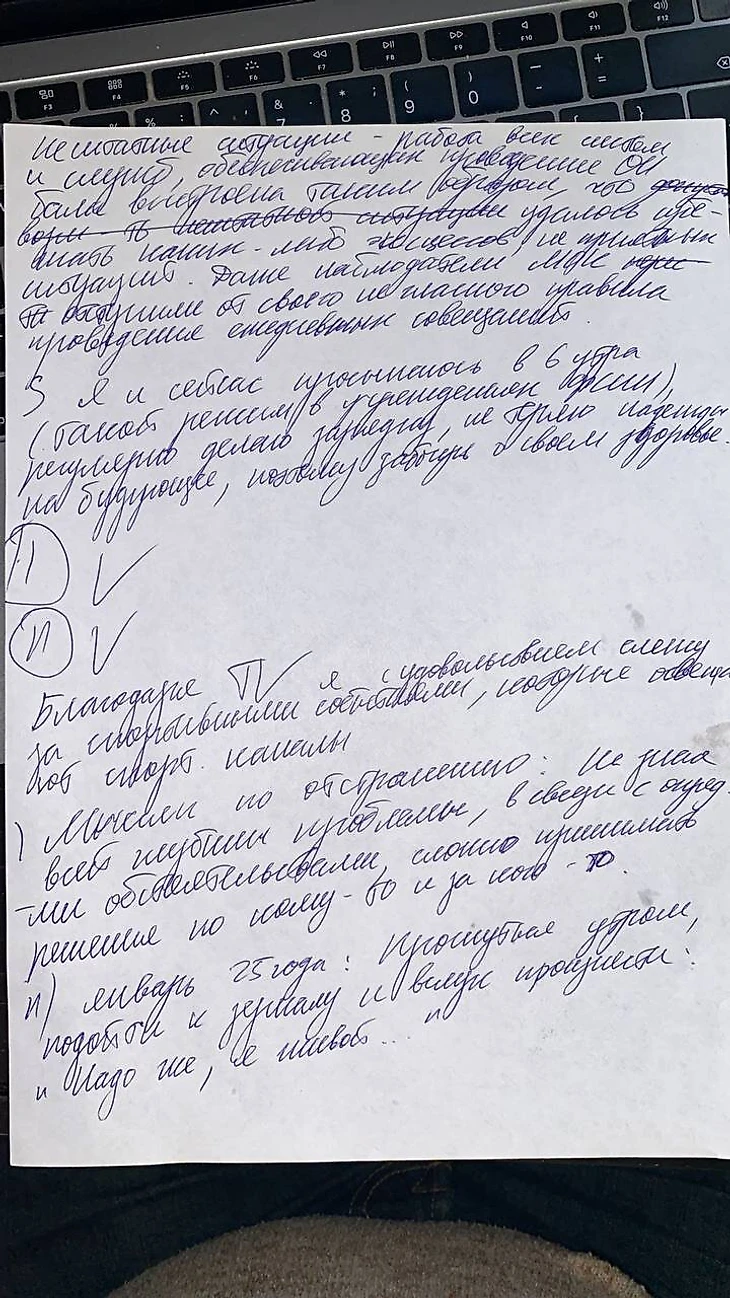 Нештатные ситуации - работа всех систем
и служб, обеспечивающих проведение ОИ
была выстроена таким образом, что
удалось избе-
жать каких-либо эксцессов, не приятных
ситуаций. Даже наблюдатели МОК
отступили от своего негласного правила
проведение ежедневных совещаний.
Я и сейчас просыпаюсь в 6 утра
(такой режим в учреждениях ФСИН),
регулярно делаю зарядку, не теряю надежды
на будующее, поэтому забочусь о своем здоровье.
11 V
П V
Благодаря TV я с удовольствием слежу
за спортивными событиями, которые освеща
ют спорт. каналы
) Мысли по отстранению: Не зная
всей глубины проблемы, в связи с опред-
ми обстоятельствами, сложно принимать
решение по кому-то и за кого-то.
п) январь 25 года: Проснуться утром,
подойти к зеркалу и вслух произнести:
"Надо же, я живой..."